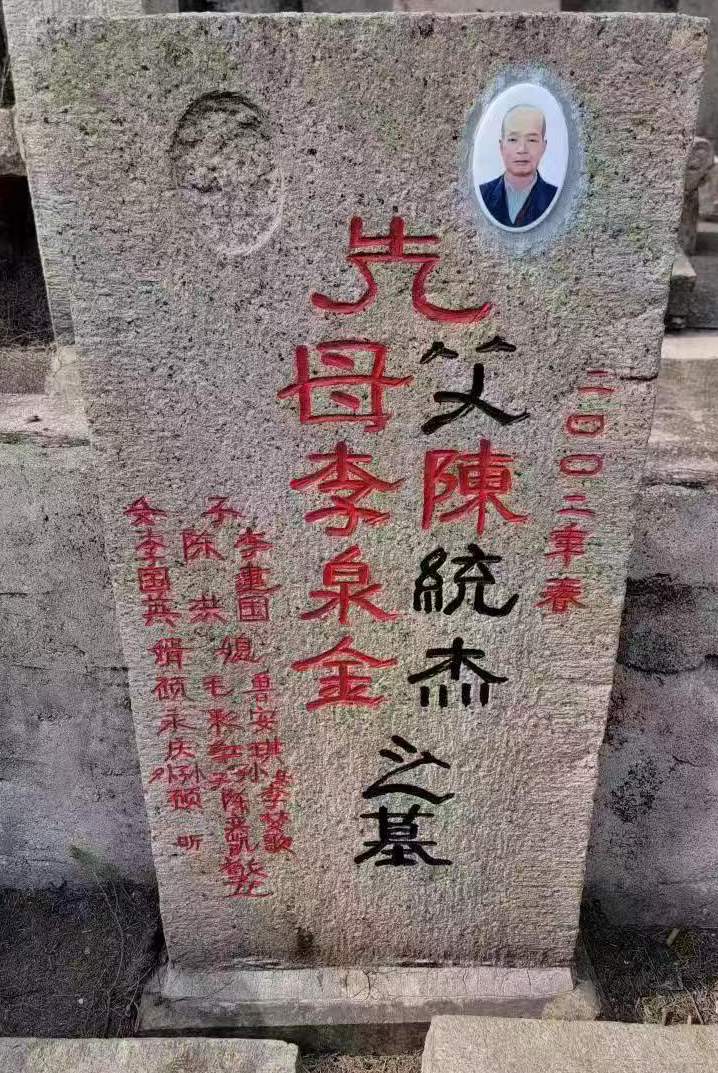 二〇〇二年春
先
父陳統杰
母李泉金
之墓
子
李建国
陈洪
媳
鲁安琪
毛彩红
孙
李梦歌
子陈奕凯
女李国英
婿顾永庆
外孙
顾昕
敬立